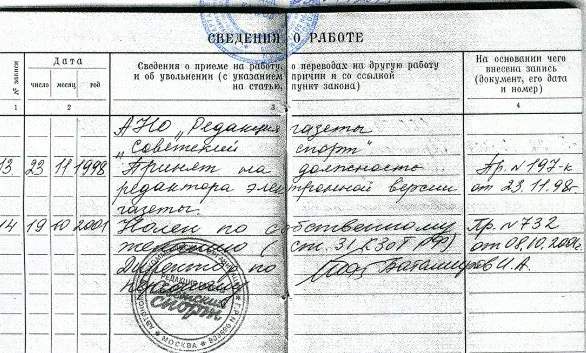 СВЕДЕНИЯ О РАБОТЕ
№ записи
Дата
число
месяц
год
Сведения о приеме на работу, о переводах на другую работу
и об увольнении (с указанием причин и со ссылкой
на статью, пункт закона)
На основании чего
внесена запись
(документ, его дата
и номер)
1
2
3
4
АНО „Редакция газеты
„Советский спорт"
13 23 11 1998 Принят на должность Пр. № 197-к
редактора электронной версии от 23.11.98г.
газеты.
14 19 10 2001 Уволен по собственному Пр. № 732
желанию (ст. 31 КЗоТ РФ) от 08.10.2001
Директор по
РЕДАКЦИЯ
Советский
спорт
МОСКВА